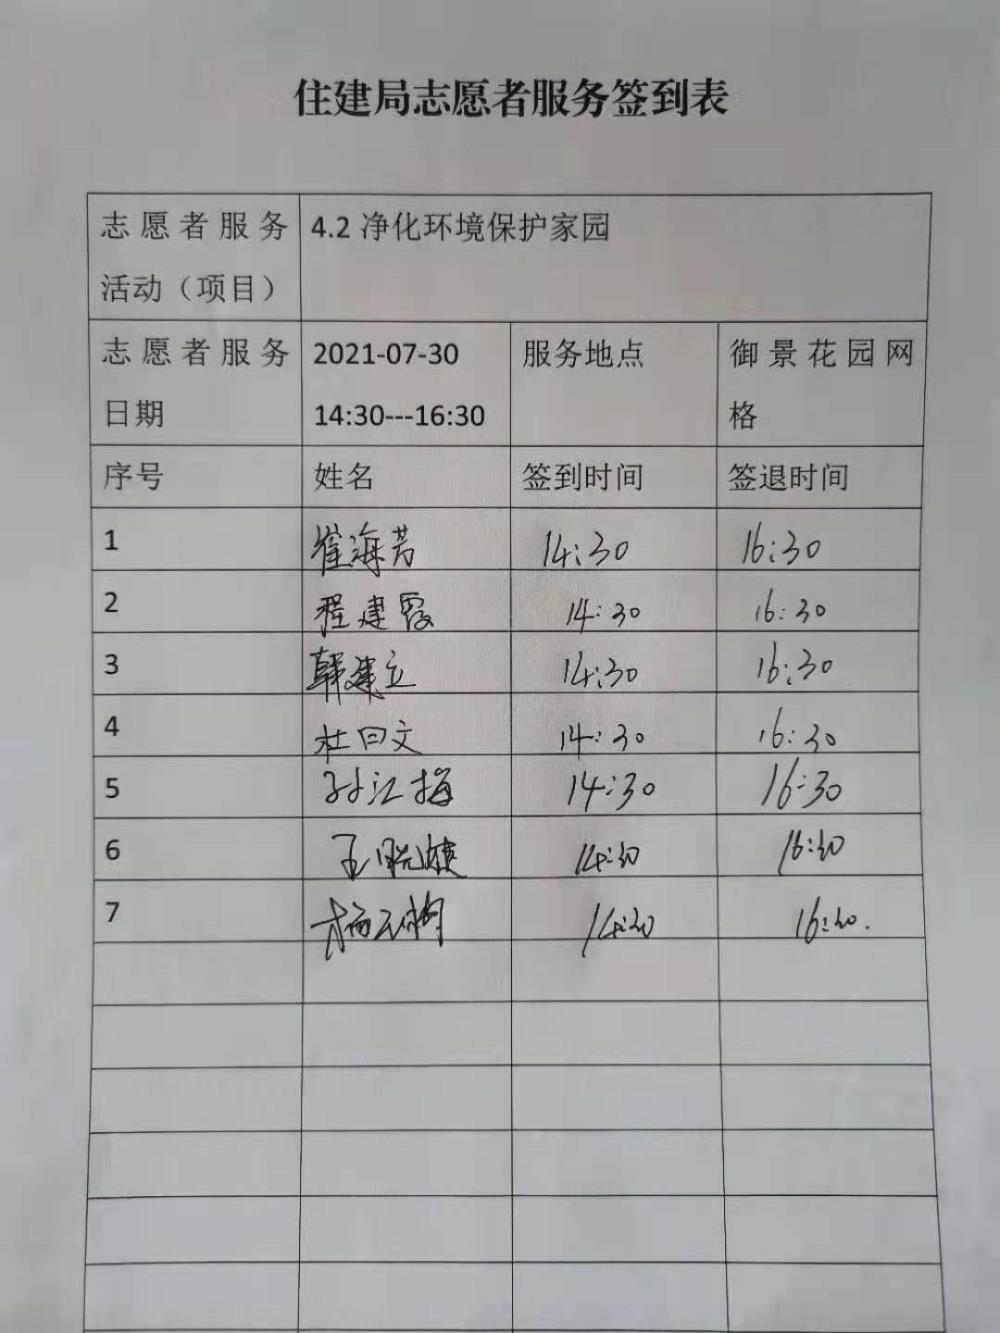 住建局志愿者服务签到表
志愿者服务 4.2 净化环境保护家园
活动（项目）
志愿者服务 2021-07-30 服务地点 御景花园网
日期 14:30---16:30 格
序号 姓名 签到时间 签退时间
1 崔海芳 14:30 16:30
2 程建霞 14:30 16:30
3 韩建立 14:30 16:30
4 杜曰文 14:30 16:30
5 孙江梅 14:30 16:30
6 王 14:30 16:30
7 14:30 16:30.